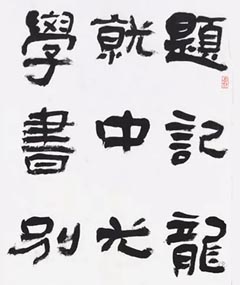 題記龍
就中尤
學書別